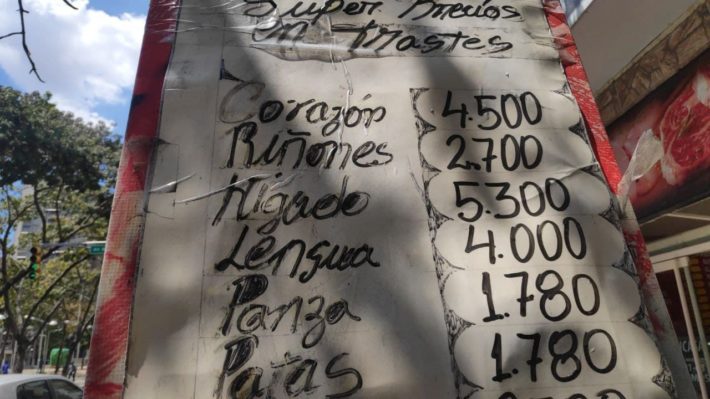 Super Precios
Corazón 4.500
Riñones 2.700
Higado 5.300
Lengua 4.000
Panza 1.780
Patas 1.780